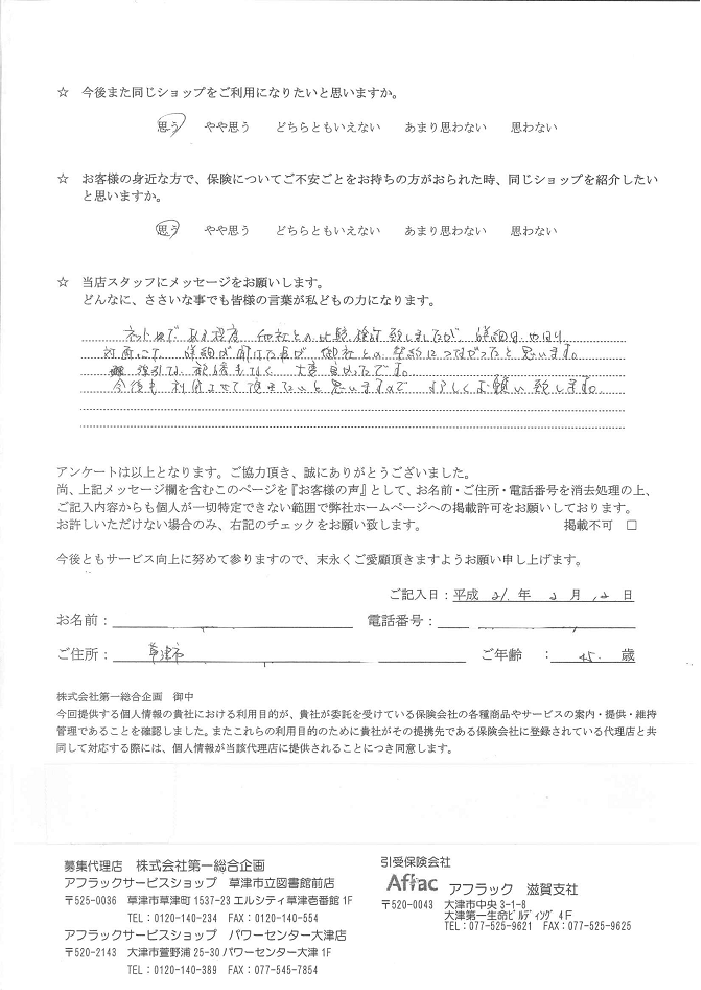 ☆ 今後また同じショップをご利用になりたいと思いますか。
思う やや思う どちらともいえない あまり思わない 思わない
☆ お客様の身近な方で、保険についてご不安ごとをお持ちの方がおられた時、同じショップを紹介したい
と思いますか。
思う やや思う どちらともいえない あまり思わない 思わない
☆ 当店スタッフにメッセージをお願いします。
どんなに、ささいな事でも皆様の言葉が私どもの力になります。
ネット等である程度 他社との比較検討致しましたが 詳細は やはり
対面にて 詳細が聞けた事が 御社との契約につながったと思います。
強引な 勧誘もなく 大変 良かったです。
今後も利用させて頂きたいと思いますので よろしくお願い致します。
アンケートは以上となります。ご協力頂き、誠にありがとうございました。
尚、上記メッセージ欄を含むこのページを『お客様の声』として、お名前・ご住所・電話番号を消去処理の上、
ご記入内容からも個人が一切特定できない範囲で弊社ホームページへの掲載許可をお願いしております。
お許しいただけない場合のみ、右記のチェックをお願い致します。 掲載不可 □
今後ともサービス向上に努めて参りますので、末永くご愛顧頂きますようお願い申し上げます。
ご記入日：平成 21 年 2 月 12 日
お名前： 電話番号：
ご住所： 草津市 ご年齢 ： 45. 歳
株式会社第一総合企画 御中
今回提供する個人情報の貴社における利用目的が、貴社が委託を受けている保険会社の各種商品やサービスの案内・提供・維持
管理であることを確認しました。またこれらの利用目的のために貴社がその提携先である保険会社に登録されている代理店と共
同して対応する際には、個人情報が当該代理店に提供されることにつき同意します。
募集代理店 株式会社第一総合企画
アフラックサービスショップ 草津市立図書館前店
〒525-0036 草津市草津町1537-23 エルシティ草津壱番館 1F
TEL：0120-140-234 FAX：0120-140-554
アフラックサービスショップ パワーセンター大津店
〒520-2143 大津市萱野浦25-30 パワーセンター大津 1F
TEL：0120-140-389 FAX：077-545-7854
引受保険会社
Aflac アフラック 滋賀支社
〒520-0043 大津市中央3-1-8
大津第一生命ビルディング 4F
TEL：077-525-9621 FAX：077-525-9625